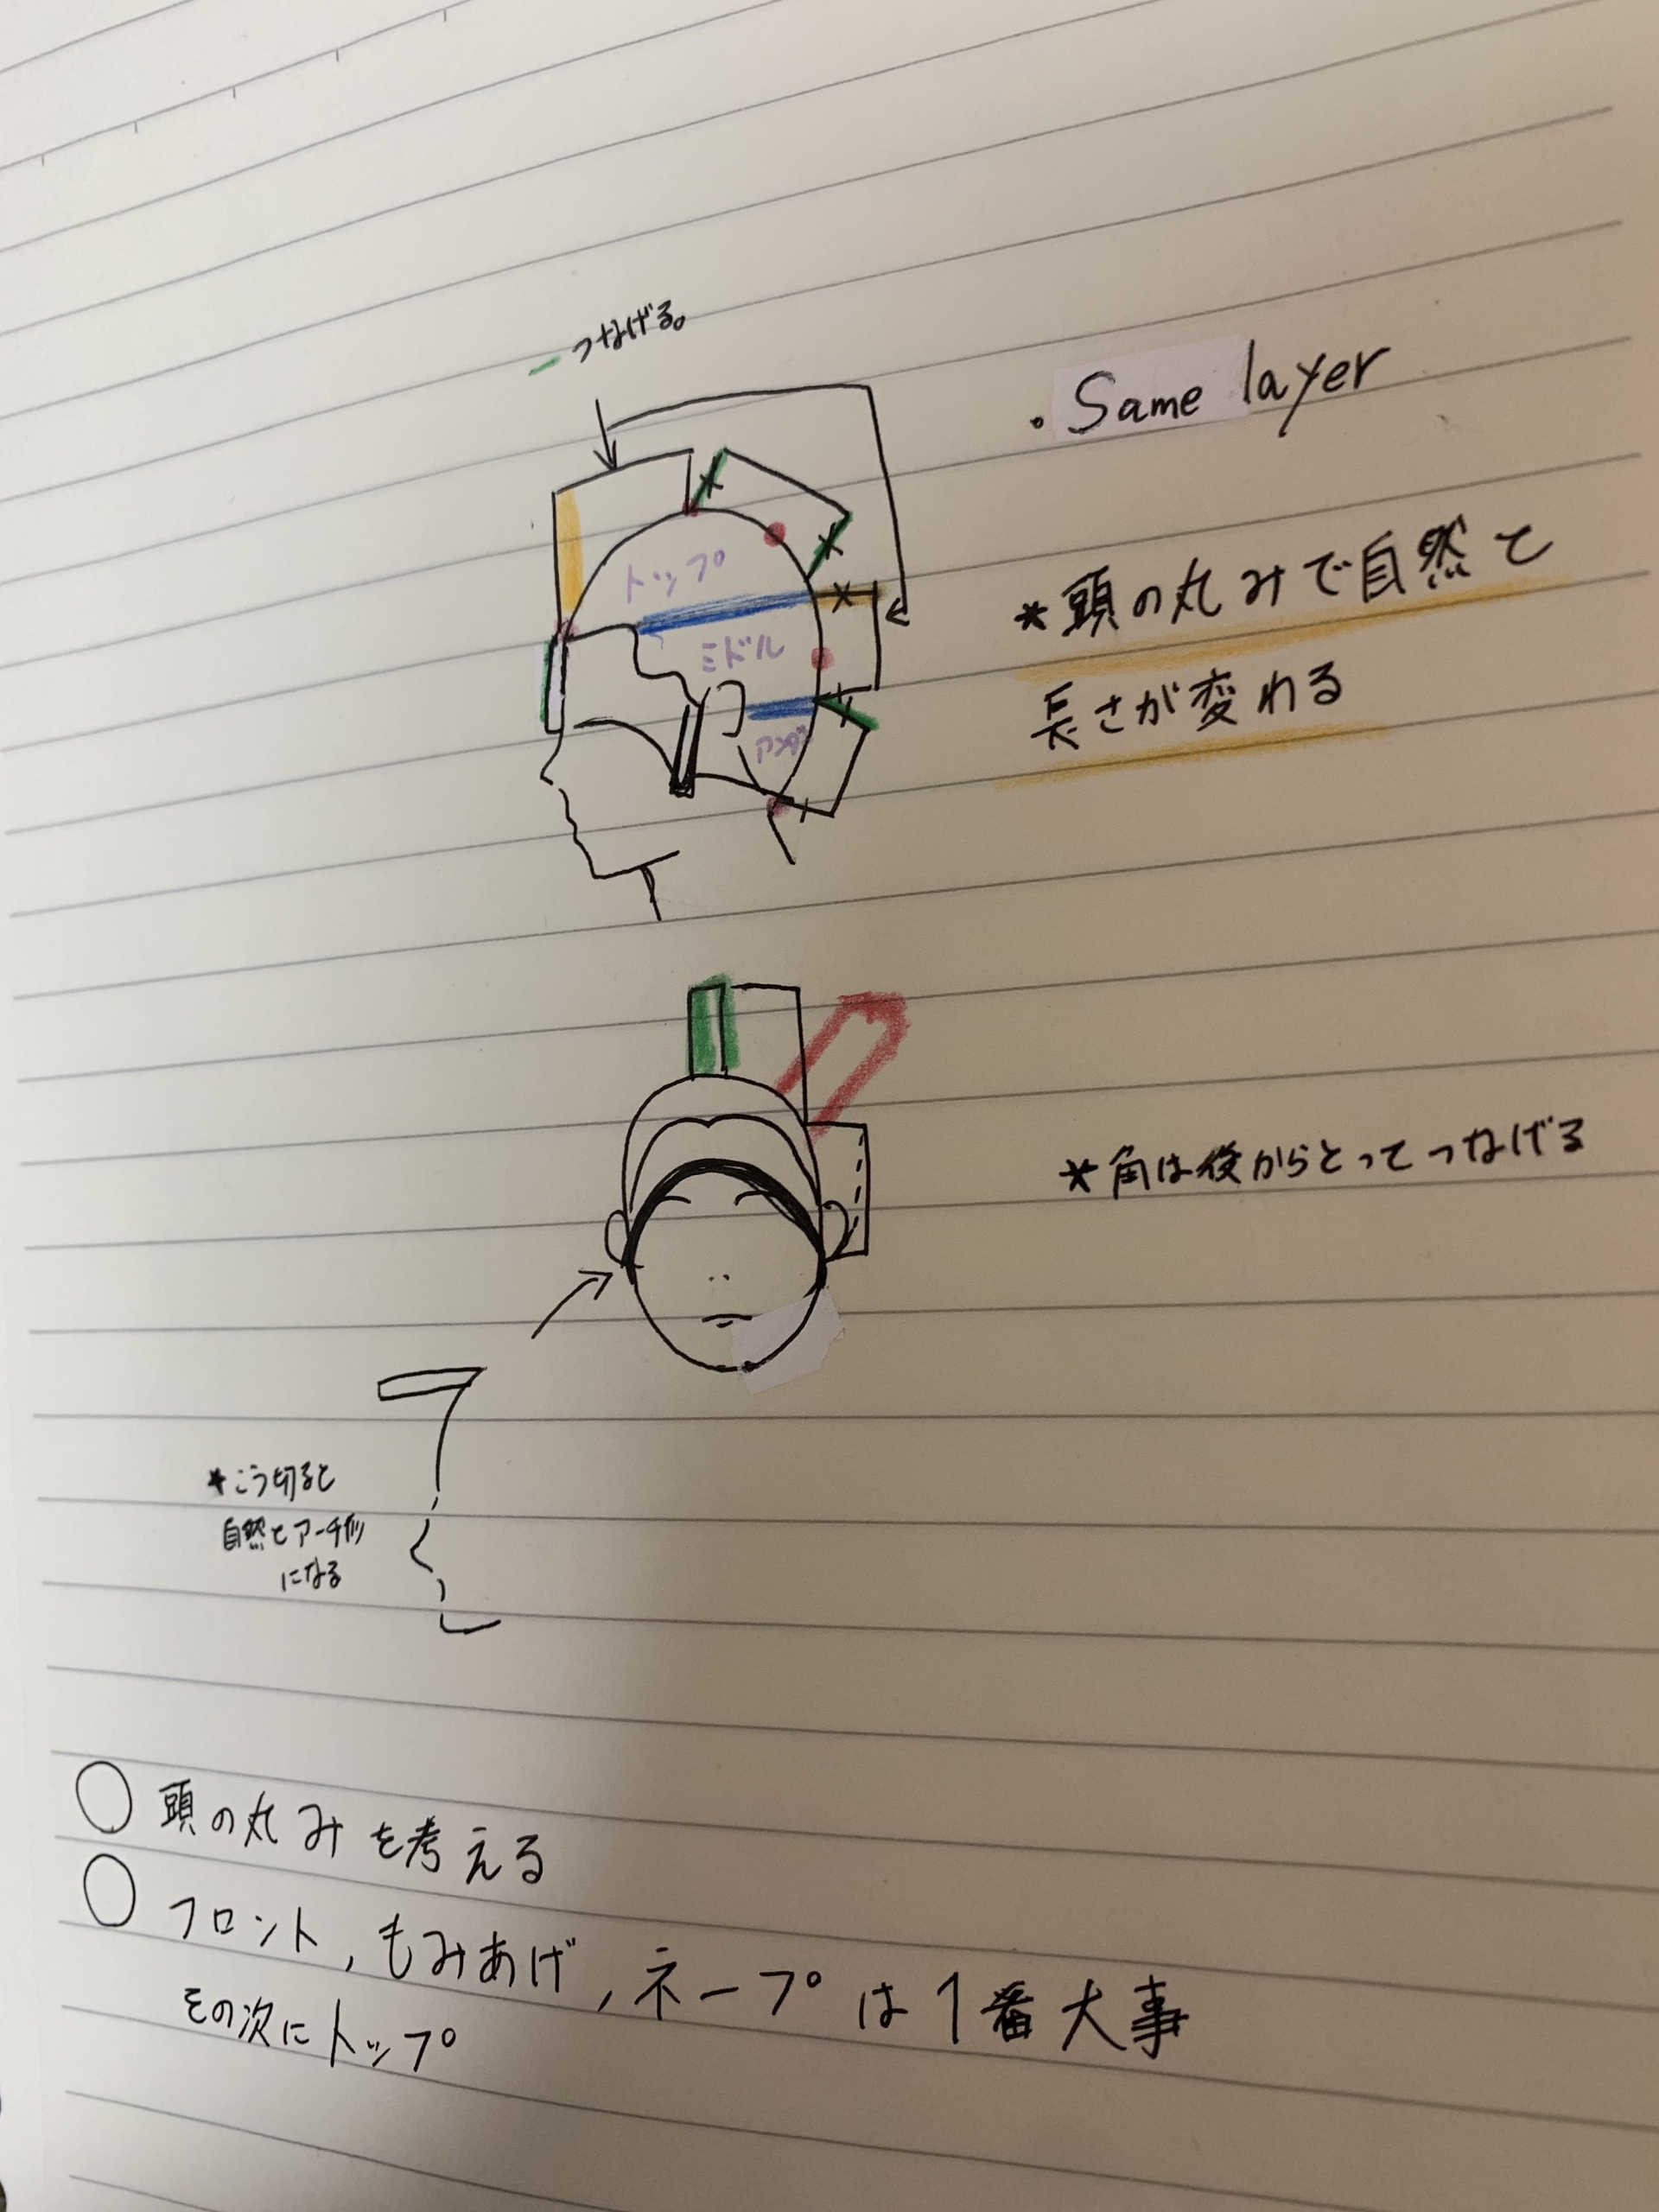 つなげる。
・Same layer
トップ
ミドル
アンダー
*頭の丸みで自然と
長さが変わる
*角は後からとってつなげる
*こう切ると
自然とアーチ形
になる
○頭の丸みを考える
○フロント,もみあげ,ネープは1番大事
その次にトップ